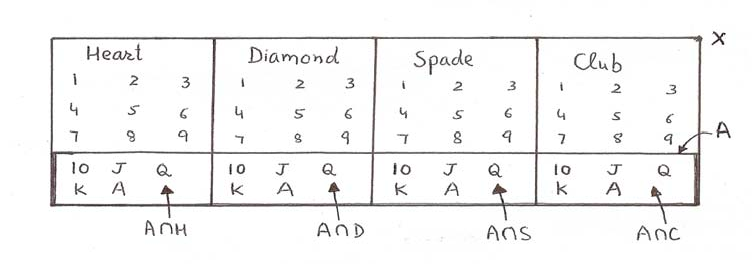 X
Heart Diamond Spade Club
1 2 3 1 2 3 1 2 3 1 2 3
4 5 6 4 5 6 4 5 6 4 5 6
7 8 9 7 8 9 7 8 9 7 8 9
A
10 J Q 10 J Q 10 J Q 10 J Q
K A K A K A K A
A∩H A∩D A∩S A∩C